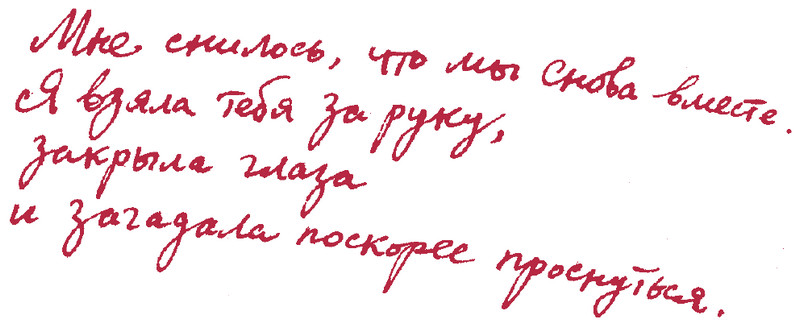 Мне снилось, что мы снова вместе.
Я взяла тебя за руку,
закрыла глаза
и загадала поскорее проснуться.